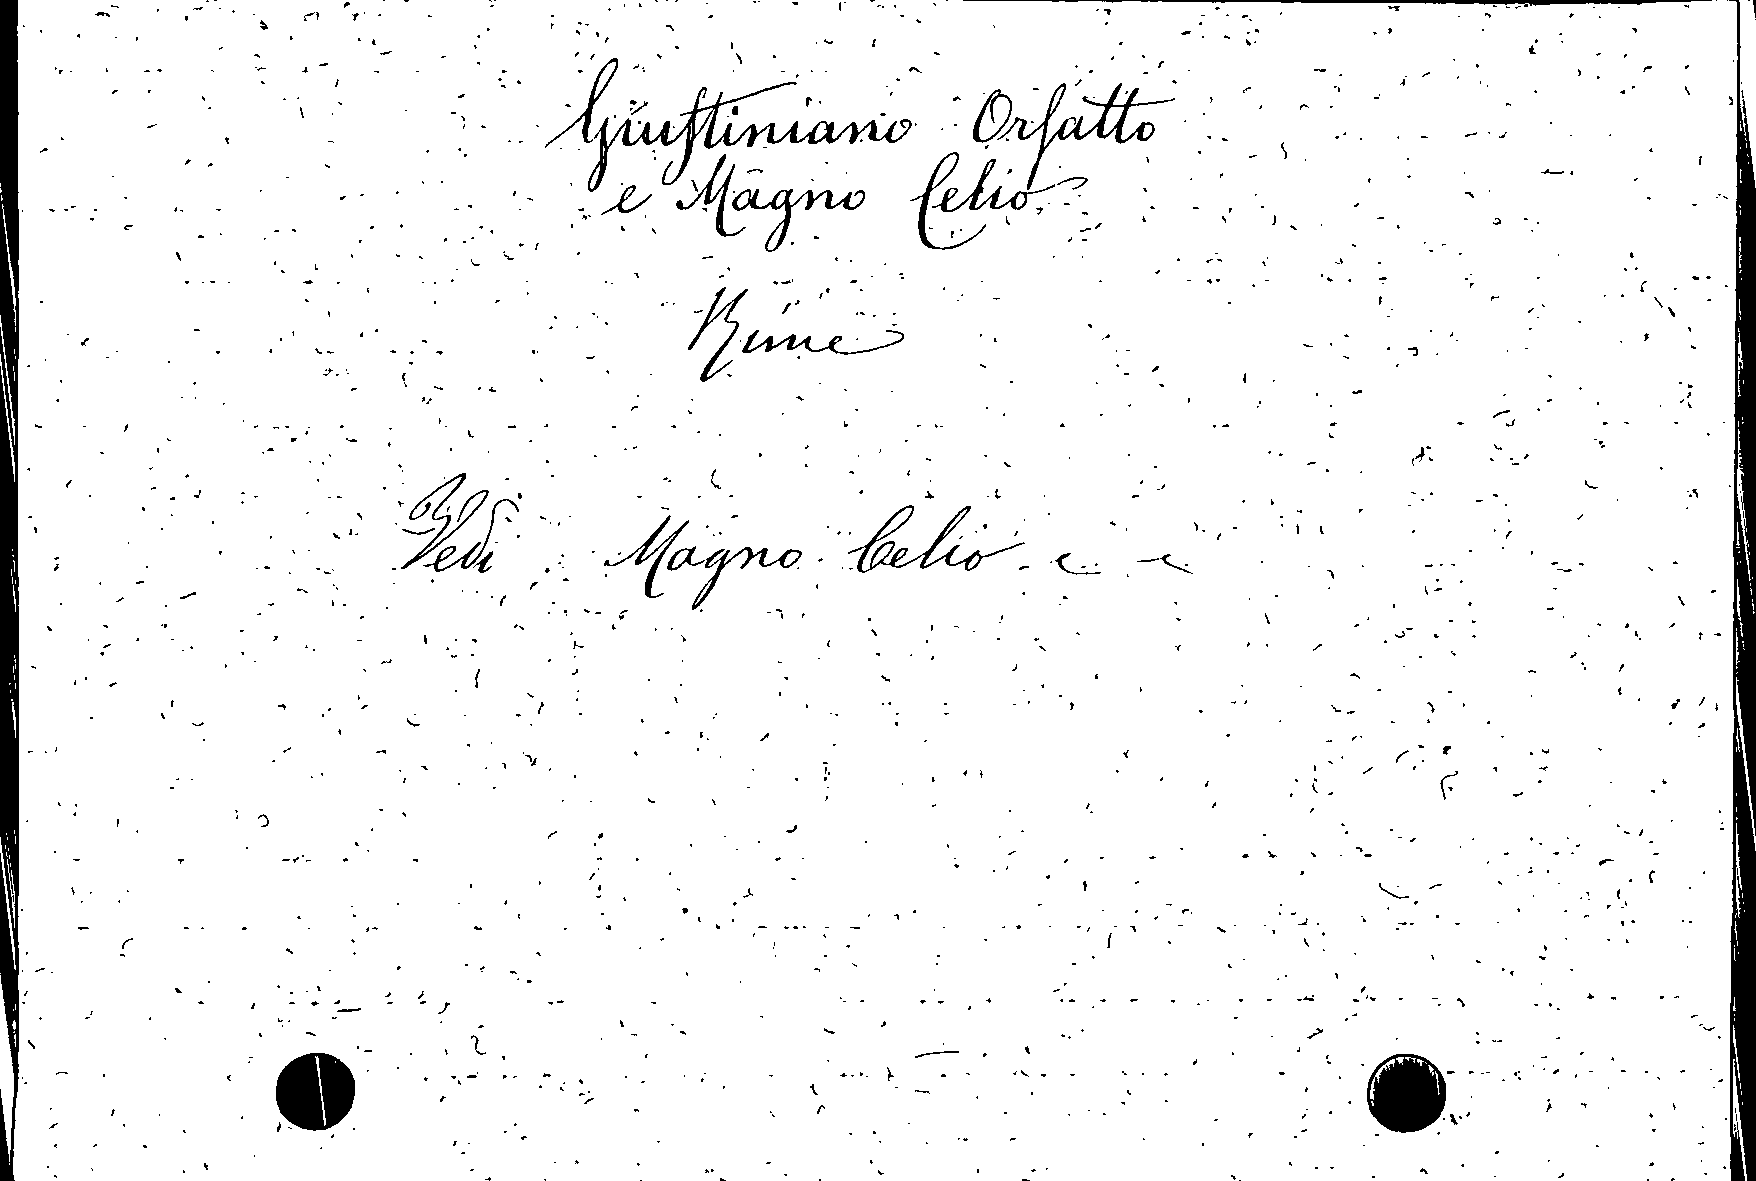 Giustiniano Orsatto
e Magno Celio
Rime
Vedi Magno Celio e e